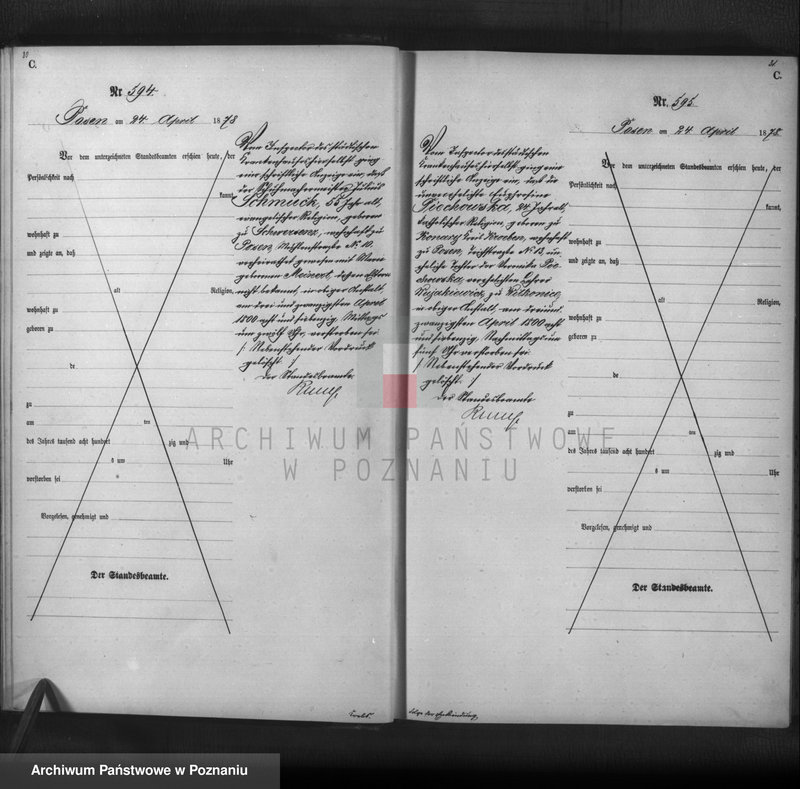 20
C.
Nr 594.
Posen am 24. April 1878
Vor dem unterzeichneten Standesbeamten erschien heute, der
Persönlichkeit nach
kannt,
wohnhaft zu
und zeigte an, daß
alt Religion,
wohnhaft zu
geboren zu
de
zu
am ten
des Jahres tausend acht hundert zig und
s um Uhr
verstorben sei
Vorgelesen, genehmigt und
Der Standesbeamte.
Vom Inspector des städtischen
Krankenhauses hierselbst ging
eine schriftliche Anzeige ein, daß
der Schuhmachermeister Julius
Schmuck, 56 Jahr alt,
evangelischer Religion, geboren
zu Schwersenz, wohnhaft zu
Posen, Mühlenstraße No 10.
verheirathet gewesen mit
geborenen Meinert, dessen Eltern
nicht bekannt, in obiger Anstalt,
am drei und zwanzigsten April
1800 acht und siebenzig, Mittags
um zwölf Uhr, verstorben sei
/: Nebenstehender Vordruck
gelöscht. :/
Der Standesbeamte
21
C.
Nr. 595.
Posen am 24 April 1878.
Vor dem unterzeichneten Standesbeamten erschien heute, der
Persönlichkeit nach
kannt,
wohnhaft zu
und zeigte an, daß
alt Religion,
wohnhaft zu
geboren zu
de
zu
am ten
des Jahres tausend acht hundert zig und
s um Uhr
verstorben sei
Vorgelesen, genehmigt und
Der Standesbeamte.
Vom Inspector des städtischen
Krankenhauses hierselbst ging eine
schriftliche Anzeige ein, daß die
unverehelichte
Piechowska, 24 Jahr alt,
katholischer Religion, geboren zu
Konary Kreis Kroeben, wohnhaft
zu Posen, No 13, un-
eheliche Tochter der Veronika Pie-
chowska, verehelichten Lehrer
Kujakiewicz, zu Witkowice,
in obiger Anstalt, am drei und
zwanzigsten April 1800 acht
und siebenzig, Nachmittags um
fünf Uhr verstorben sei
/: Nebenstehender Vordruck
gelöscht. :/
Der Standesbeamte
ARCHIWUM PAŃSTWOWE
W POZNANIU
Archiwum Państwowe w Poznaniu